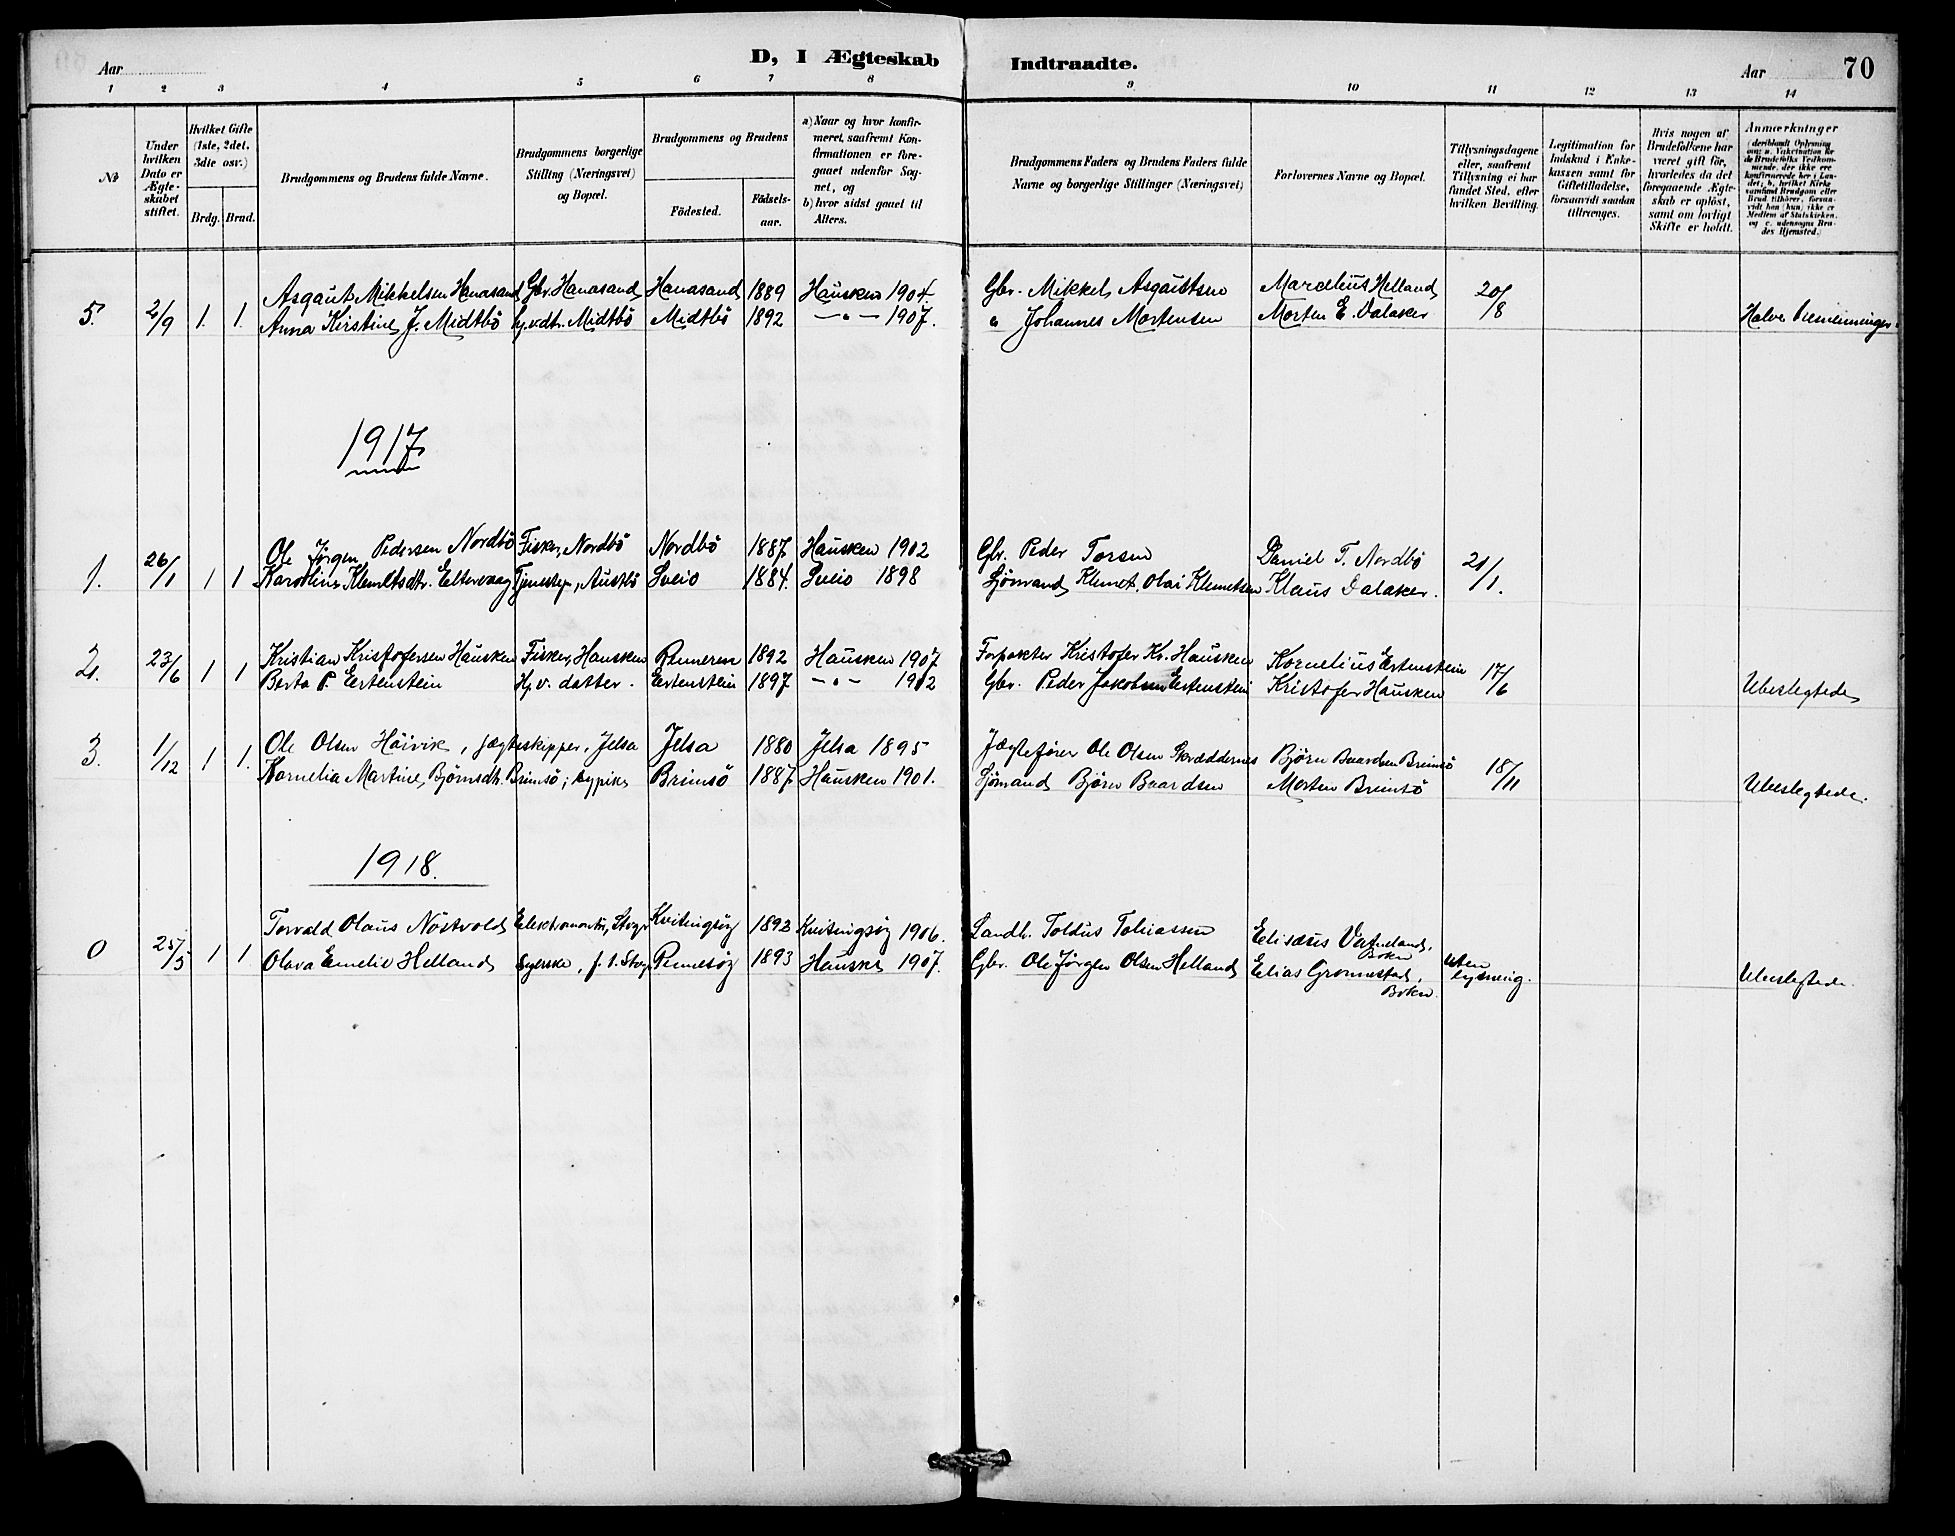 Aar
D, I Ægteskab Indtraadte.
Aar
70
1 2 3 4 5 6 7 8 9 10 11 12 13 14
No
Under hvilken Dato er Ægteskabet stiftet.
Hvilket Gifte (1ste, 2det, 3die osv.)
Brdg. Brud.
Brudgommens og Brudens fulde Navne.
Brudgommens borgerlige Stilling (Næringsvei) og Bopæl.
Brudgommens og Brudens
Fødested.
Fødselsaar.
a) Naar og hvor konfirmeret, saafremt Konfirmationen er foregaaet udenfor Sognet, og
b) hvor sidst gaaet til Alters.
Brudgommens Faders og Brudens Faders fulde Navne og borgerlige Stillinger (Næringsvei)
Forlovernes Navne og Bopæl.
Tillysningsdagene eller, saafremt Tillysning ei har fundet Sted, efter hvilken Bevilling.
Legitimation for Indskud i Enkekassen samt for Giftetilladelse, forsaavidt saadan tiltrænges.
Hvis nogen af Brudefolkene har været gift før, hvorledes da det foregaaende Ægteskab er opløst, samt om lovligt Skifte er holdt.
Anmærkninger (deriblandt Oplysning om: a. Vakcination for de Brudefolks Vedkommende, der ikke ere konfirmerede her i Landet; b. hvilket Kirkesamfund Brudgom eller Brud tilhører, forsaavidt han (hun) ikke er Medlem af Statskirken, og c. udensogns Brudes Hjemsted.)
Asgaut Mikkelsen Hanasand Gbr. Hanasand Hanasand 1889 Hausken 1904. Gbr. Mikkel Asgautsen Marcelius Helland 20/8
5. 2/9 1. 1. Anna Kirstine J. Midtbö hj.v.dtr. Midtbö Midtbö 1892 —"— 1907. " Johannes Mortensen Morten E. Dalaker Halve
1917
Ole Jörgen Pedersen Nordbö Fisker, Nordbö Nordbö 1887 Hausken 1902 Gbr. Peder Torsen Daniel T. Nordbö 21/1.
1. 26/1 1 1 Karoline Klemetsdtr. Eltervaag Tjenestep., Austbö Sveio 1884. Sveio 1898 Sjömand Klemet Olai Klemetsen Klaus Dalaker.
Kristian Kristofersen Hausken Fisker, Hausken 1892 Hausken 1907 Forpakter Kristofer Kr. Hausken Kornelius Eertenstein 17/6
2. 23/6 1 1 Berta P. Eertenstein Hj.v. datter. Eertenstein 1897 —"— 1912 Gbr. Peder Jakobsen Eertenstein Kristofer Hausken Ubeslegtede
Ole Olsen Höivik, jægteskipper, Jelsa Jelsa 1880 Jelsa 1895 Jægtefører Ole Olsen Björn Baardsen Brimsö 18/11
3. 1/12 1 1. Kornelia Martine Björnsdtr. Brimsö; sypike Brimsö 1887. Hausken 1901. Sjömand Björn Baardsen Morten Brimsö Ubeslegtede.
1918.
Torvald Olaus Nöstvold Elektromontör, Kvitingsöy 1892 Kvitingsöy 1906. Landh. Toldus Tobiassen Elisæus Vatneland, Bokn
0 25/5 1 1 Olava Emelie Helland Syerske, f. t. Rennesöy 1893 Hausken 1907. Gbr. Ole Jörgen Olsen Helland Elias Grönnestad, Bokn. Uten lysning. Ubeslegtede.